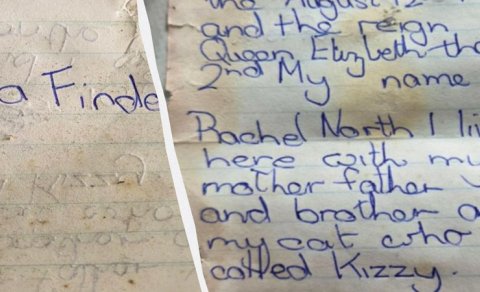 a Finde
the August 12
and the reign
Qigen Elizbeth the
2nd My name
Rachel North I li
here with mu
mother father
and brother a
my cat who
called Kizzy.